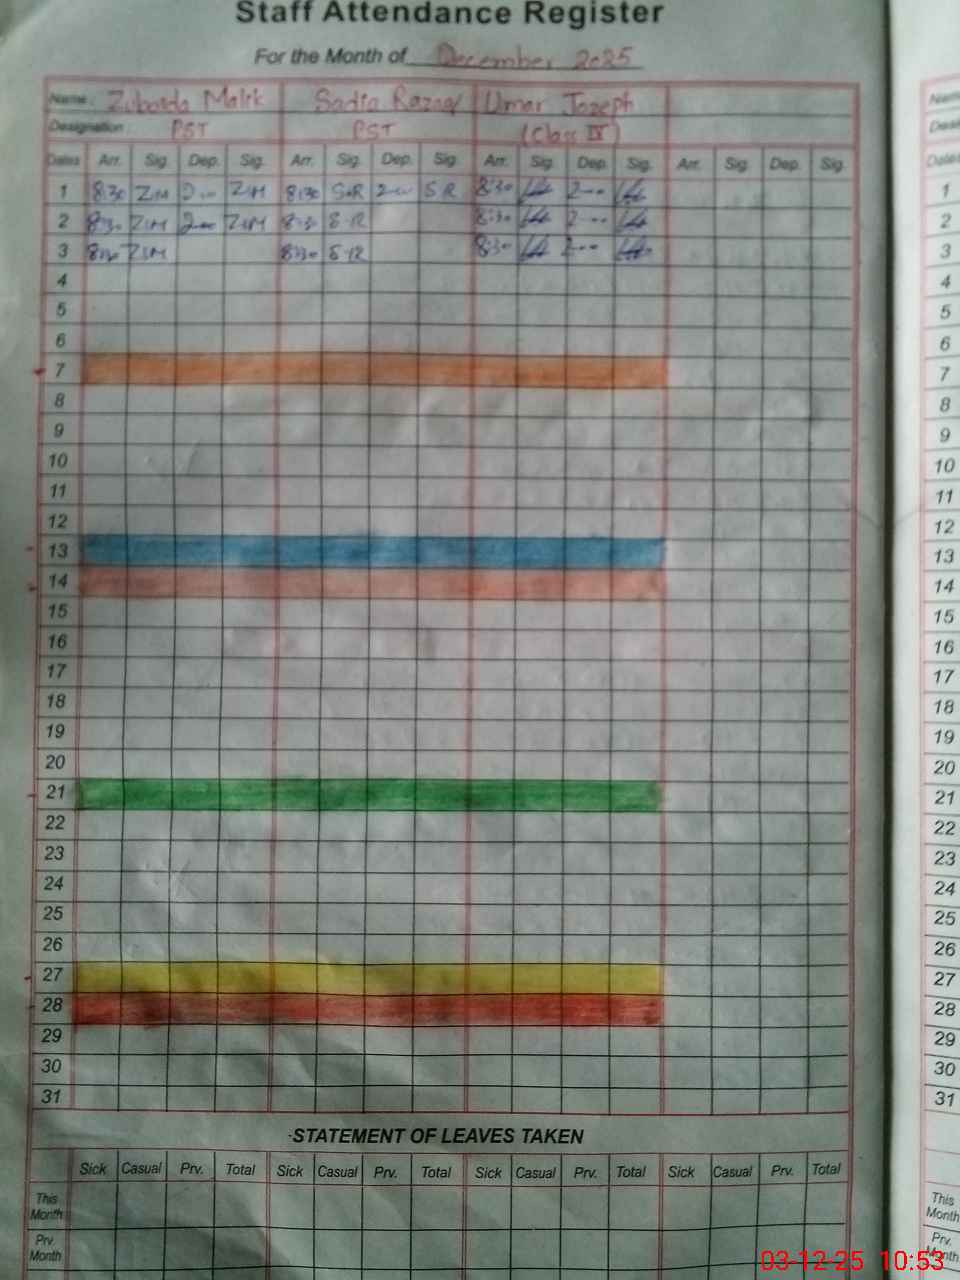 Staff Attendance Register
For the Month of December 2025
Name: Zubaida Malik Sadia Razaq Umar Jozeph
Designation: PST PST (Class IV)
Dates Arr. Sig. Dep. Sig. Arr. Sig. Dep. Sig. Arr. Sig. Dep. Sig. Arr. Sig. Dep. Sig.
1 8:30 ZIM 2:00 ZIM 8:30 S-R 2:00 S R 8:30 2:00 1
2 8:30 ZIM 2:00 ZIM 8:30 S-R 8:30 2:00 2
3 8:30 ZIM 8:30 S-R 8:30 2:00 3
4 4
5 5
6 6
7 7
8 8
9 9
10 10
11 11
12 12
13 13
14 14
15 15
16 16
17 17
18 18
19 19
20 20
21 21
22 22
23 23
24 24
25 25
26 26
27 27
28 28
29 29
30 30
31 31
STATEMENT OF LEAVES TAKEN
Sick Casual Prv. Total Sick Casual Prv. Total Sick Casual Prv. Total Sick Casual Prv. Total
This Month This Month
Prv. Month Prv. Month
03-12-25 10:53